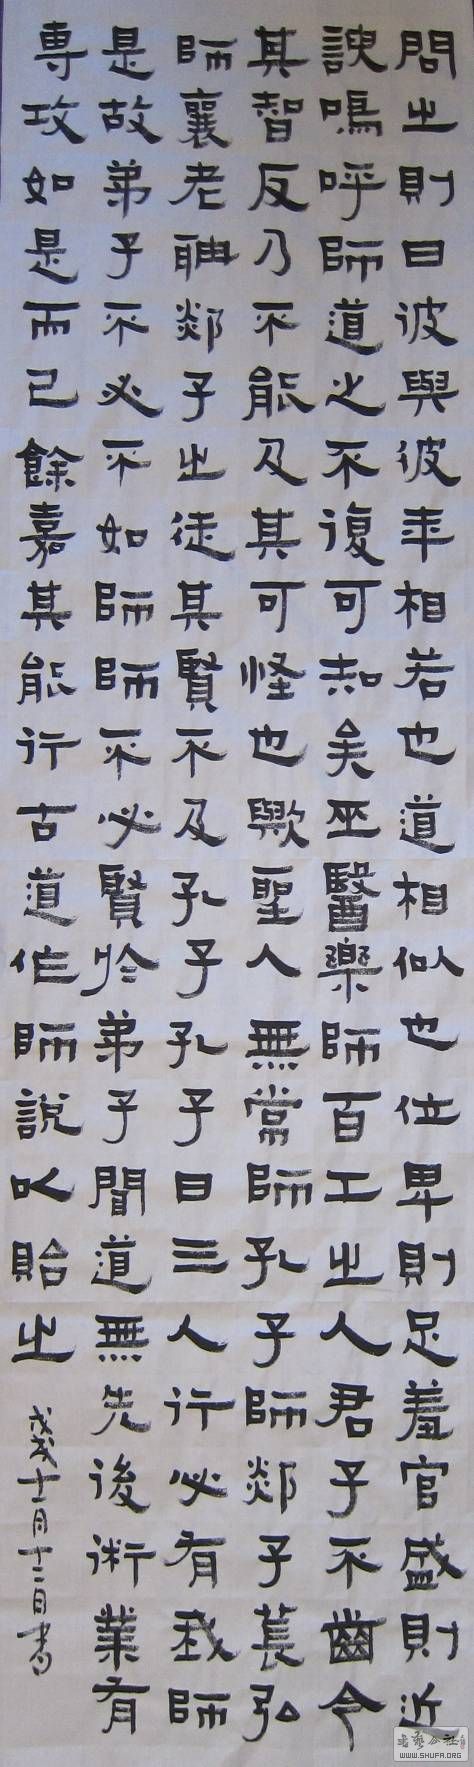 問之則曰彼與彼年相若也道相似也位卑則足羞官盛則近
諛嗚呼師道之不復可知矣巫醫樂師百工之人君子不齒今
其智反乃不能及其可怪也歟聖人無常師孔子師郯子萇弘
師襄老聃郯子之徒其賢不及孔子孔子曰三人行必有我師
是故弟子不必不如師師不必賢於弟子聞道無先後術業有
專攻如是而已餘嘉其能行古道作師說以貽之
戊戌十一月十二日書
WWW.SHUFA.ORG